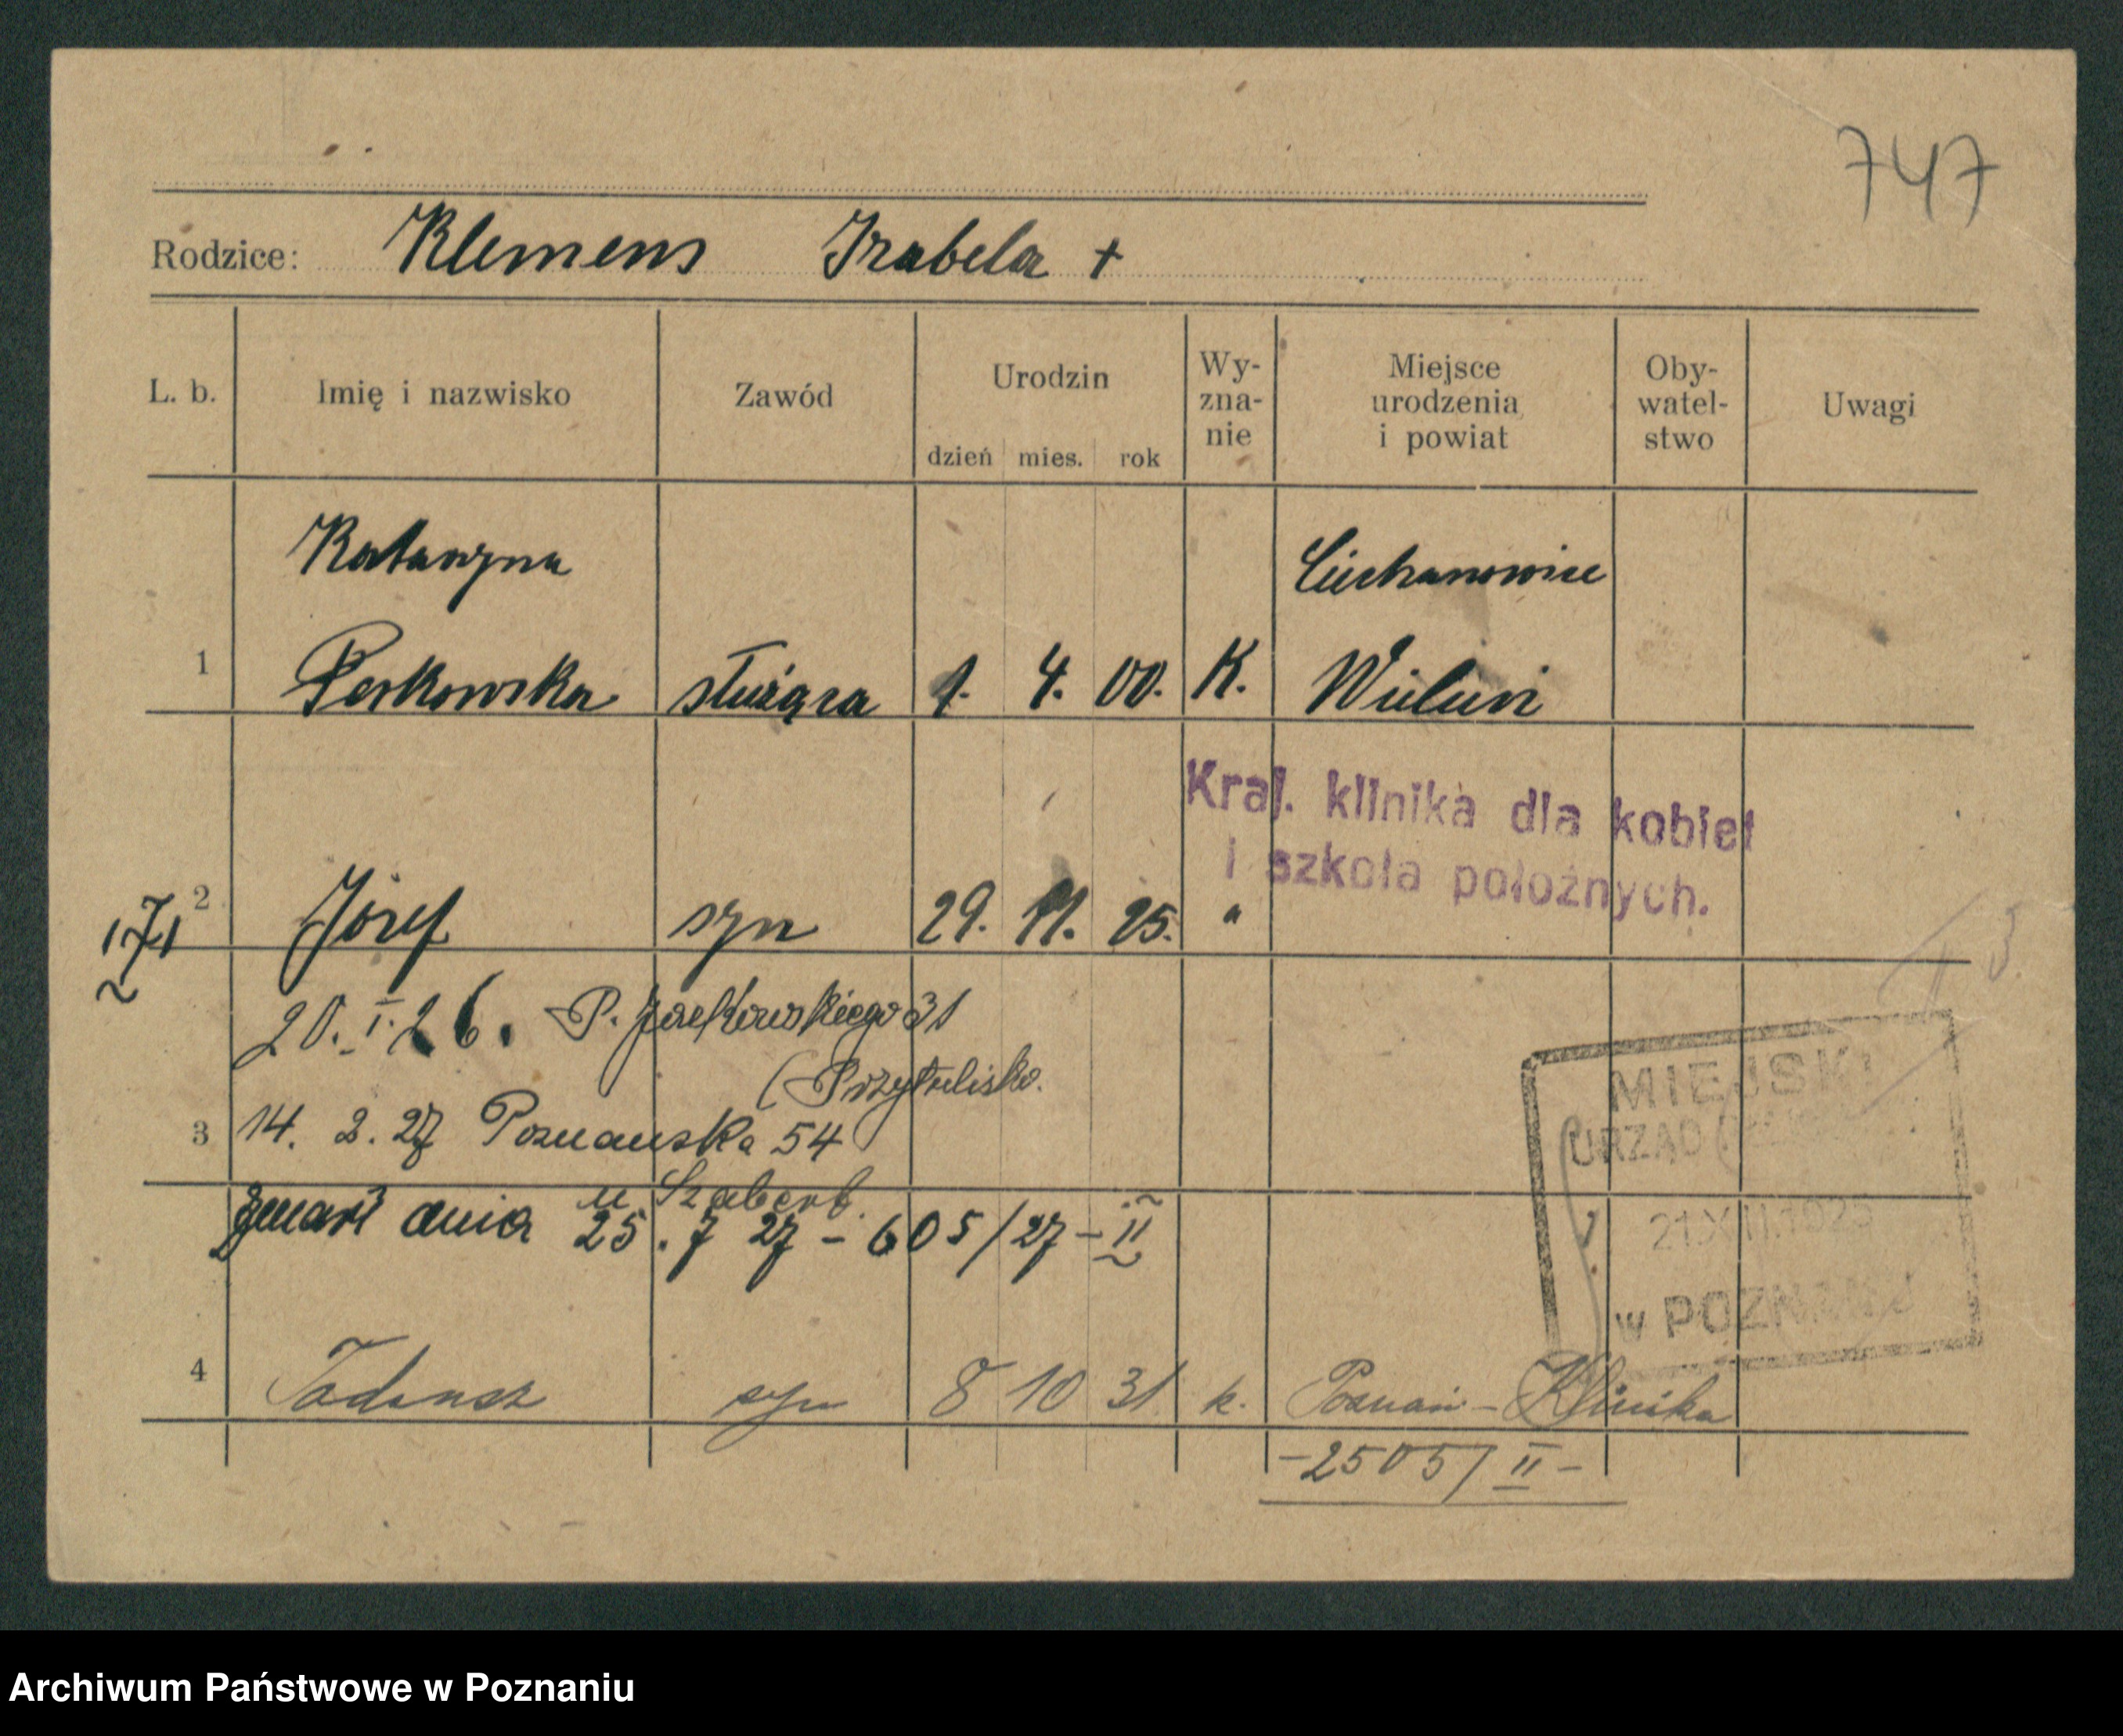 747
Rodzice: Klemens Izabela +
L. b. Imię i nazwisko Zawód Urodzin dzień mies. rok Wy-zna-nie Miejsce urodzenia i powiat Oby-watel-stwo Uwagi
Katarzyna Ciechanowice
1 Perkowska służąca 1. 4. 00. K. Wieluń
Kraj. klinika dla kobiet
i szkoła położnych.
171 2 Józef syn 29. 11. 25. "
20. I. 26. P. Jackowskiego 31
(Przytulisko.
3 14. 2. 27 Poznańska 54
u
zmarł dnia 25. 7 27 - 605/27 - II
MIEJSKI
URZĄD
21.XII.1925
w POZNANIU
4 Tadeusz syn 8 10 31 k. Poznań - Klinika
- 2505/II -
Archiwum Państwowe w Poznaniu